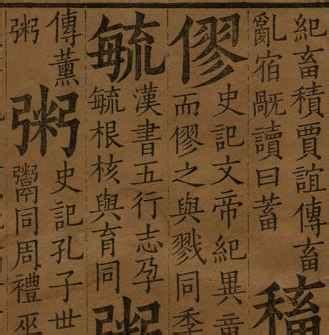 紀畜積賈誼傳畜
亂宿讀曰蓄
稸
僇
史記文帝紀異
而僇之與戮同季
毓
漢書五行志孕
毓根核與育同
粥
傳薰
粥
粥
史記孔子世
鬻同周禮巫